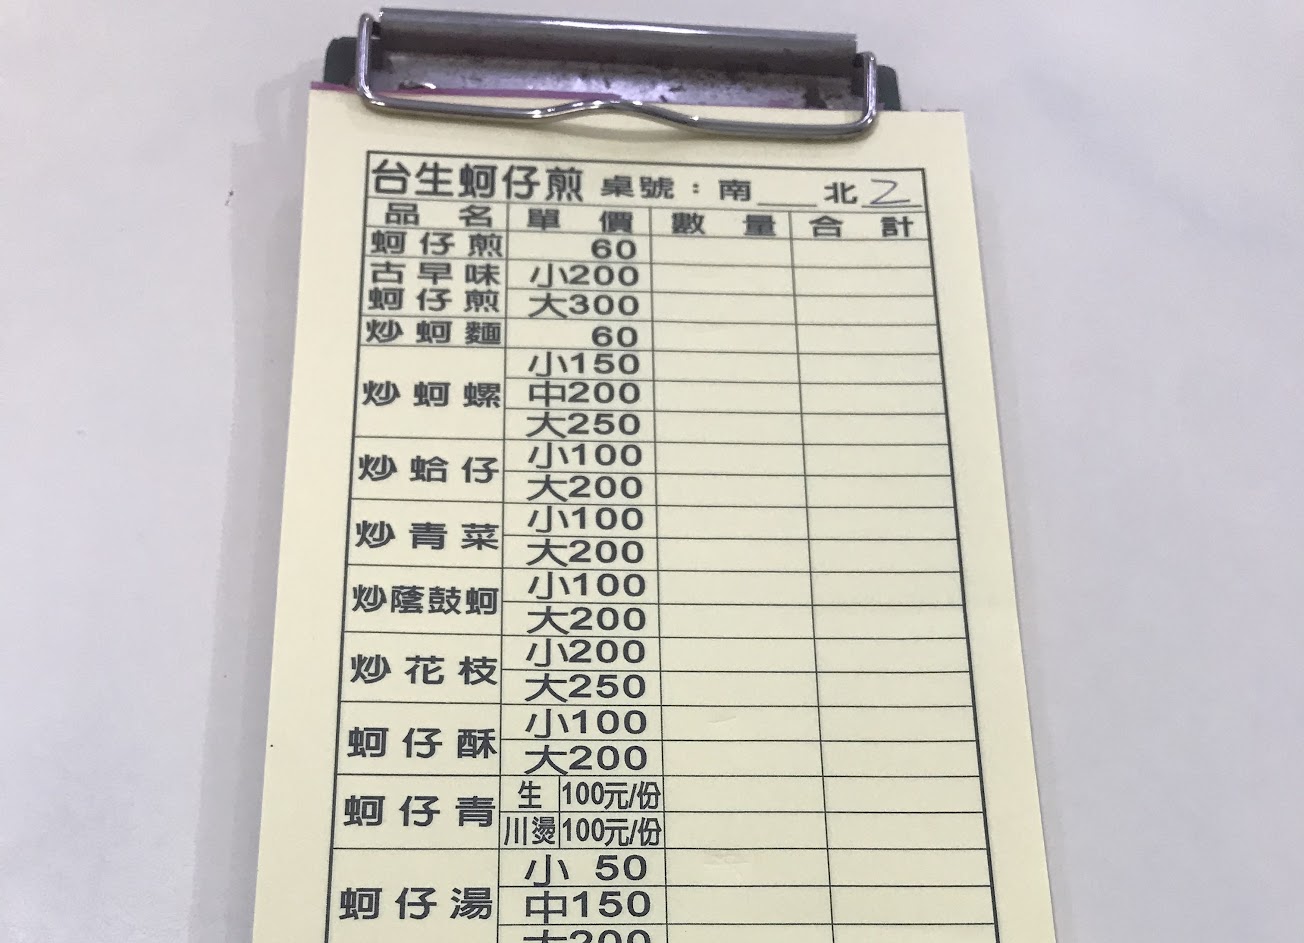 台生蚵仔煎 桌號：南___北 2
品名 單價 數量 合計
蚵仔煎 60
古早味 小200
蚵仔煎 大300
炒蚵麵 60
小150
炒蚵螺 中200
大250
炒蛤仔 小100
大200
炒青菜 小100
大200
炒蔭鼓蚵 小100
大200
炒花枝 小200
大250
蚵仔酥 小100
大200
蚵仔青 生 100元/份
川燙 100元/份
小 50
蚵仔湯 中150
大200